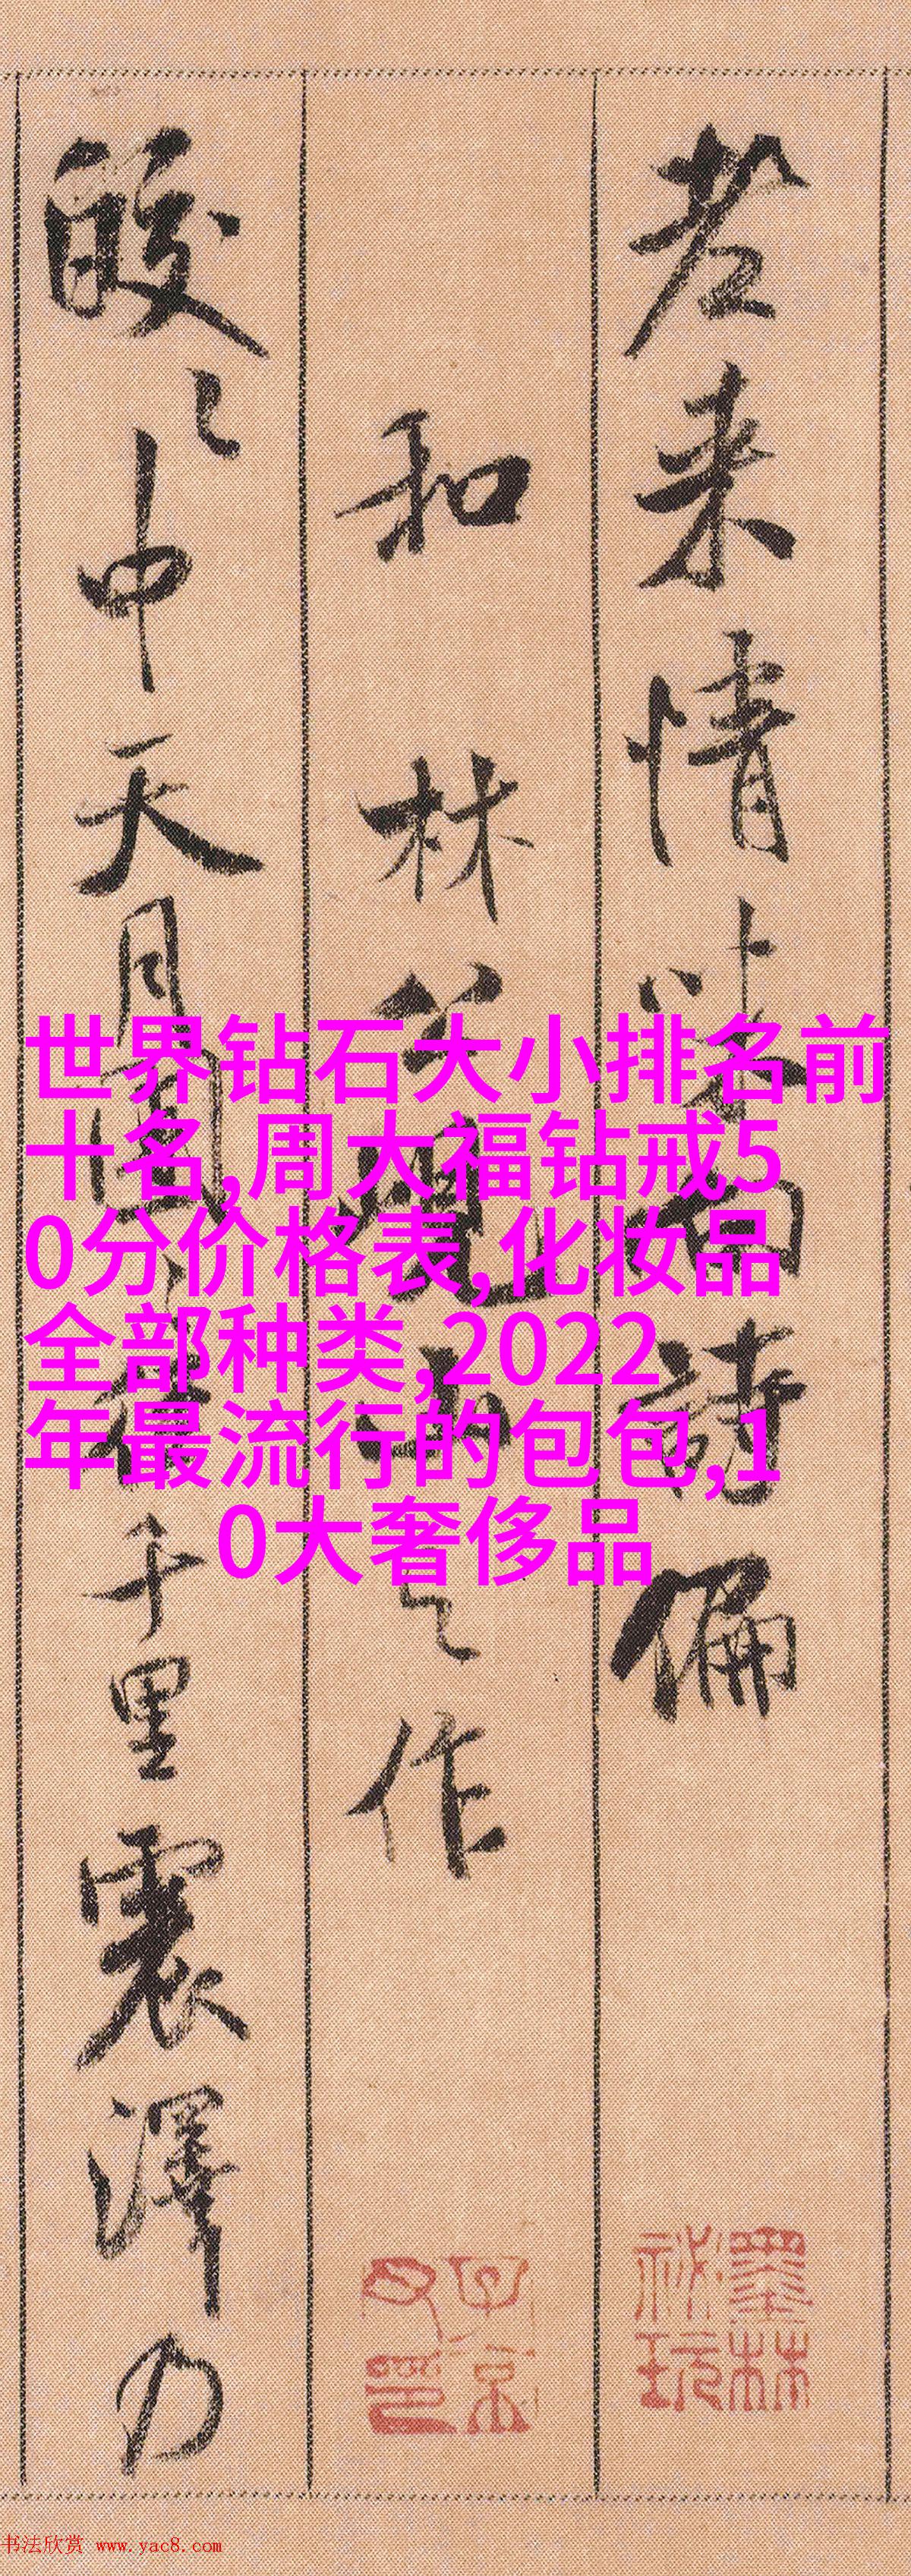 老来情味向诗偏
和林公见山之作
皎〻中天月团〻径千里震泽乃
世界钻石大小排名前
十名,周大福钻戒5
0分价格表,化妆品
全部种类,2022
年最流行的包包,1
0大奢侈品
墨林
秘玩
书法欣赏 www.yac8.com